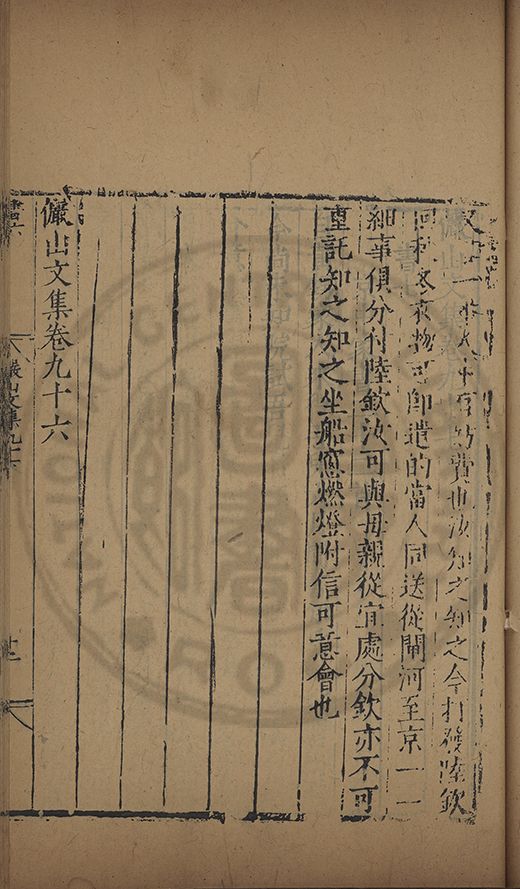 費也汝知之知之今打發陸欽
冬衣物可即遣的當人同送從閘河至京一一
細事俱分付陸欽汝可與母親從宜處分欽亦不可
重託知之知之坐船窓燃燈附信可意會也
儼山文集卷九十六